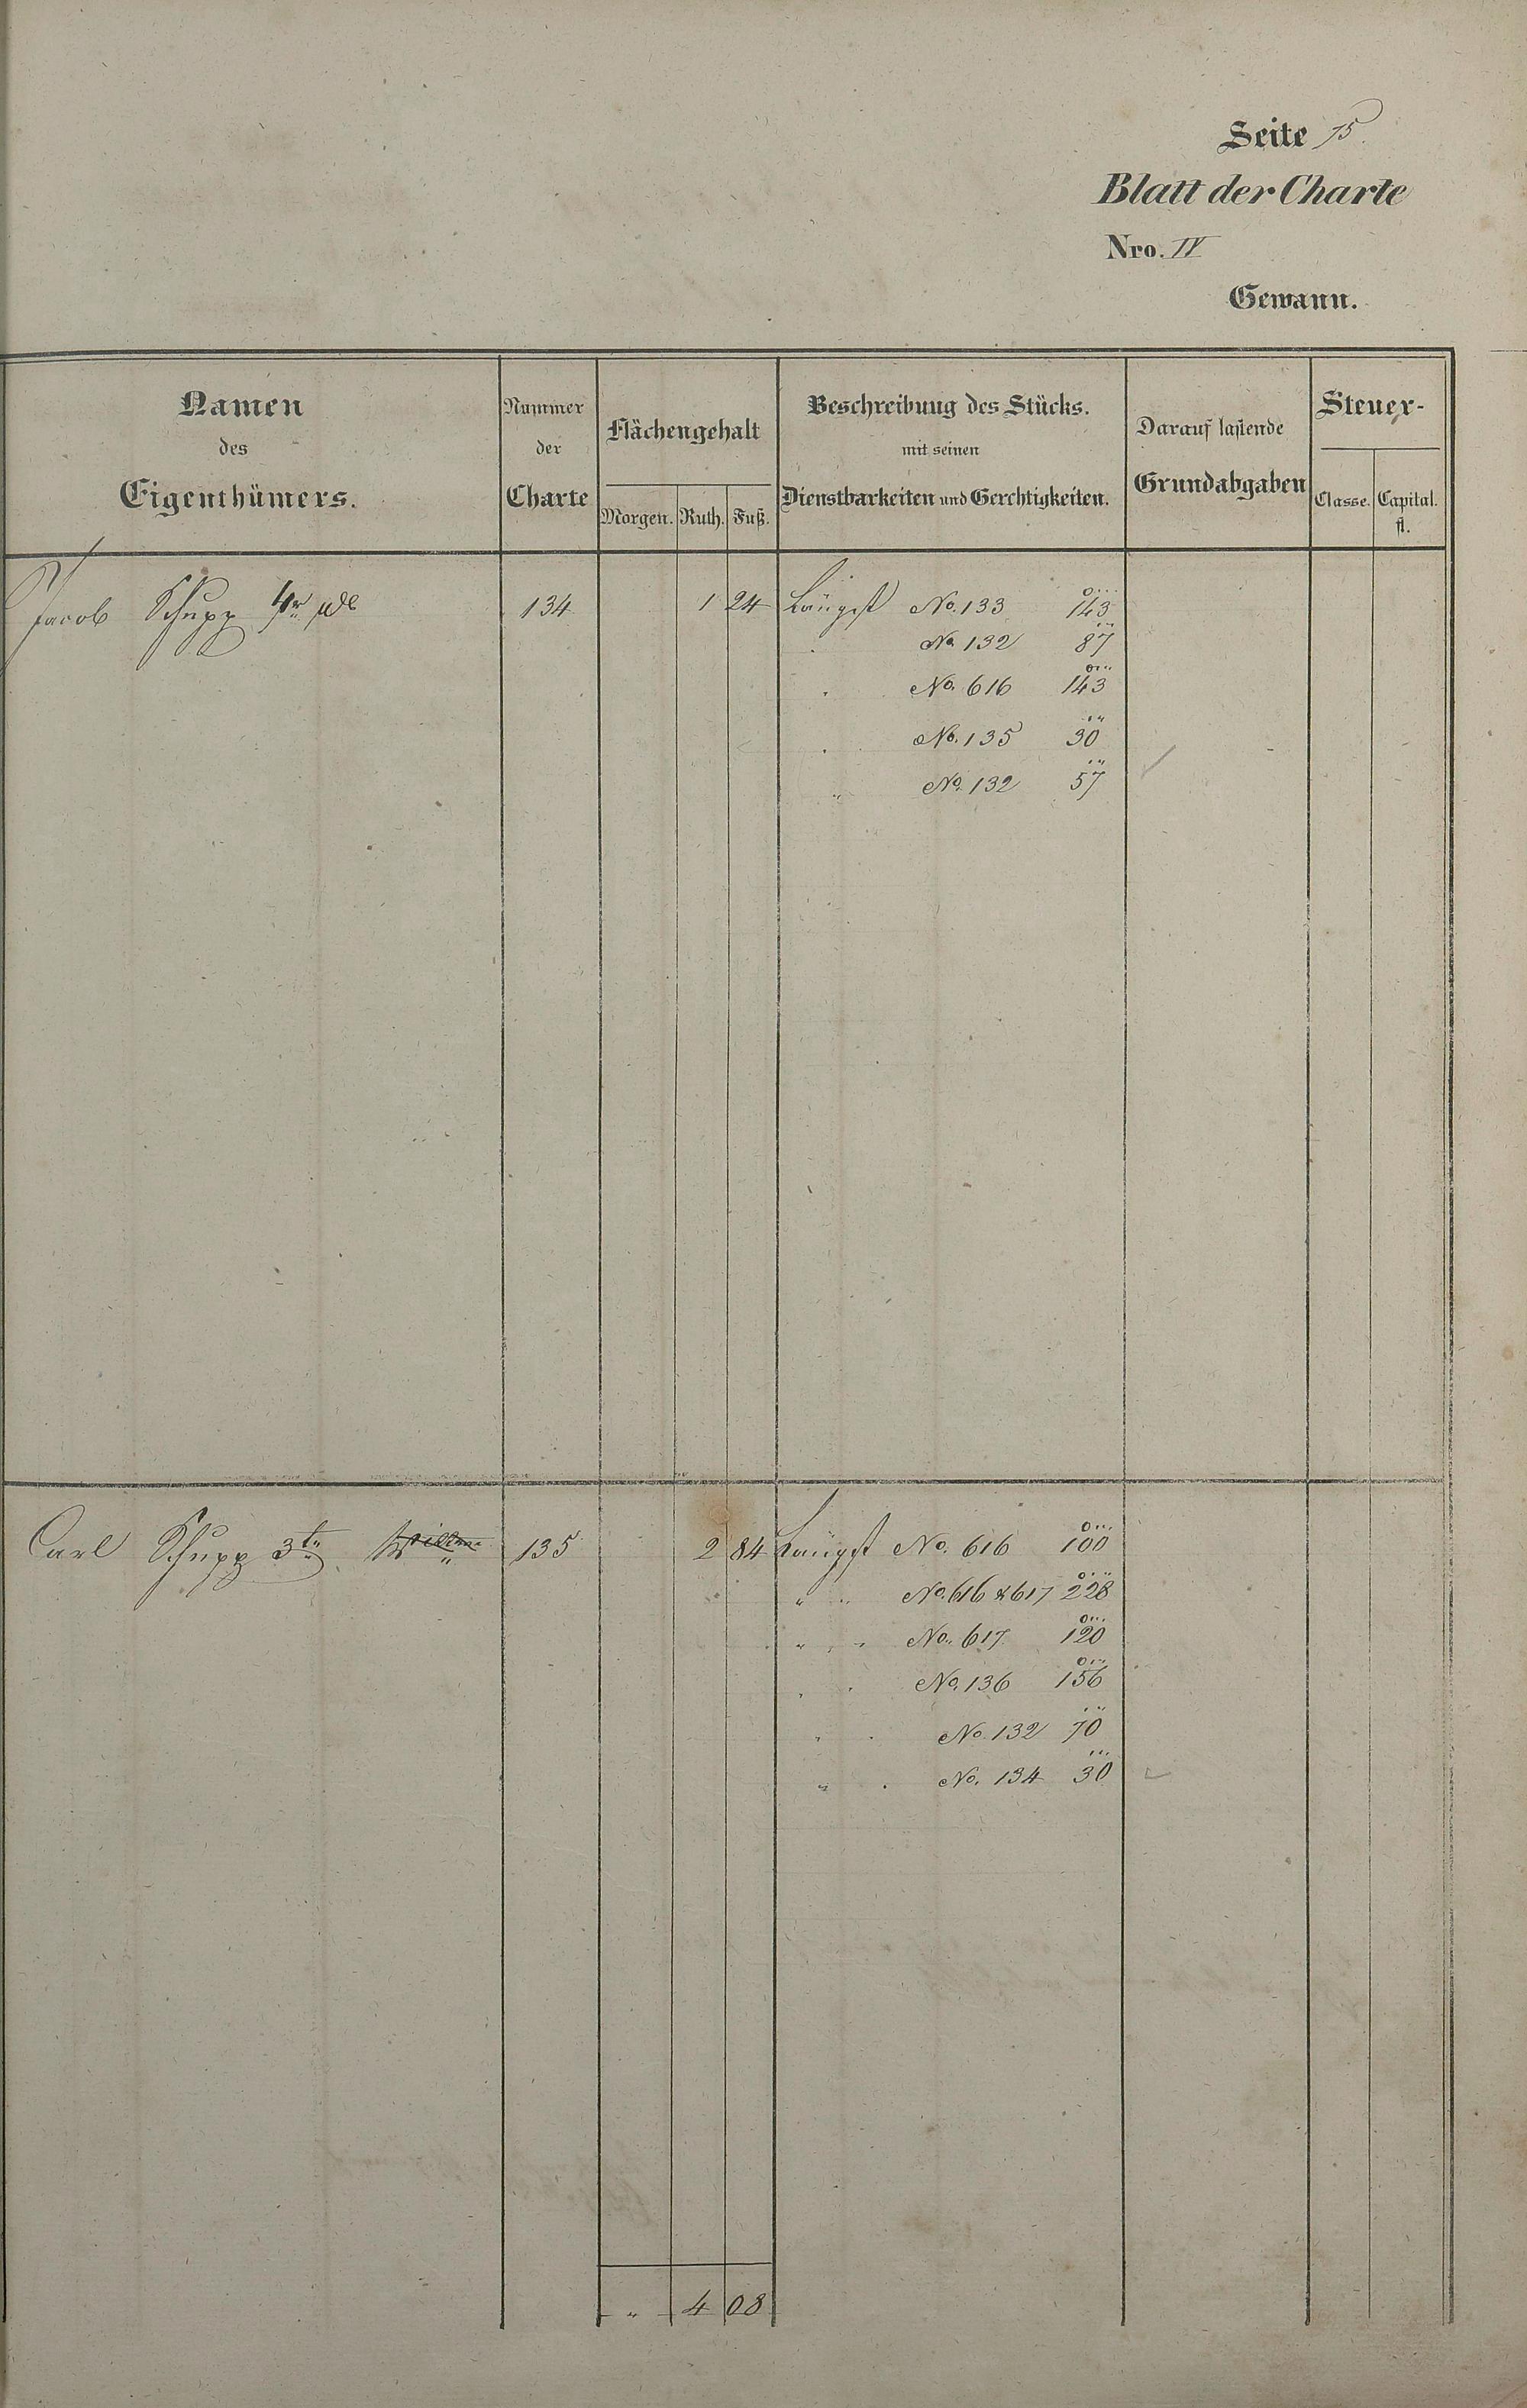 Seite 15.
Blatt der Charte
Nro. IV
Gewann.
Namen
des
Eigenthümers.
Nummer
der
Charte
Flächengehalt
Morgen. Ruth. Fuß.
Beschreibung des Stücks.
mit seinen
Dienstbarkeiten und Gerechtigkeiten.
Darauf lastende
Grundabgaben
Steuer-
Classe. Capital.
fl.
Jacob Schupp 4r 134 1 24 Längst No. 133 143
No. 132 87
No. 616 143
No. 135 30
" No. 132 57
Carl Schupp 3te 135 2 84 Längst No. 616 100
" " No. 616 & 617 228
" " No. 617 120
" " No. 136 156
" " No. 132 70
" " No. 134 30
" 4 08